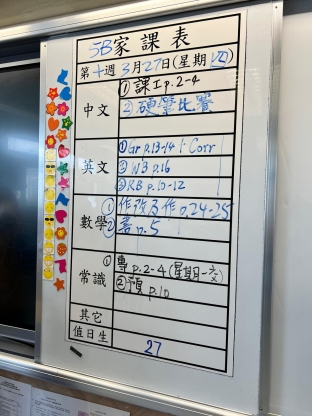 5B家課表
第十週3月27日(星期四)
中文
①課工p.2-4
②硬筆比賽
英文
①Gr p.13-14 1-Corr
③WB p.16
③RB p.10-12
數學
①作改及作p.24-25
②書p.5
常識
①專p.2-4(星期一交)
②預p.10
其它
值日生
27